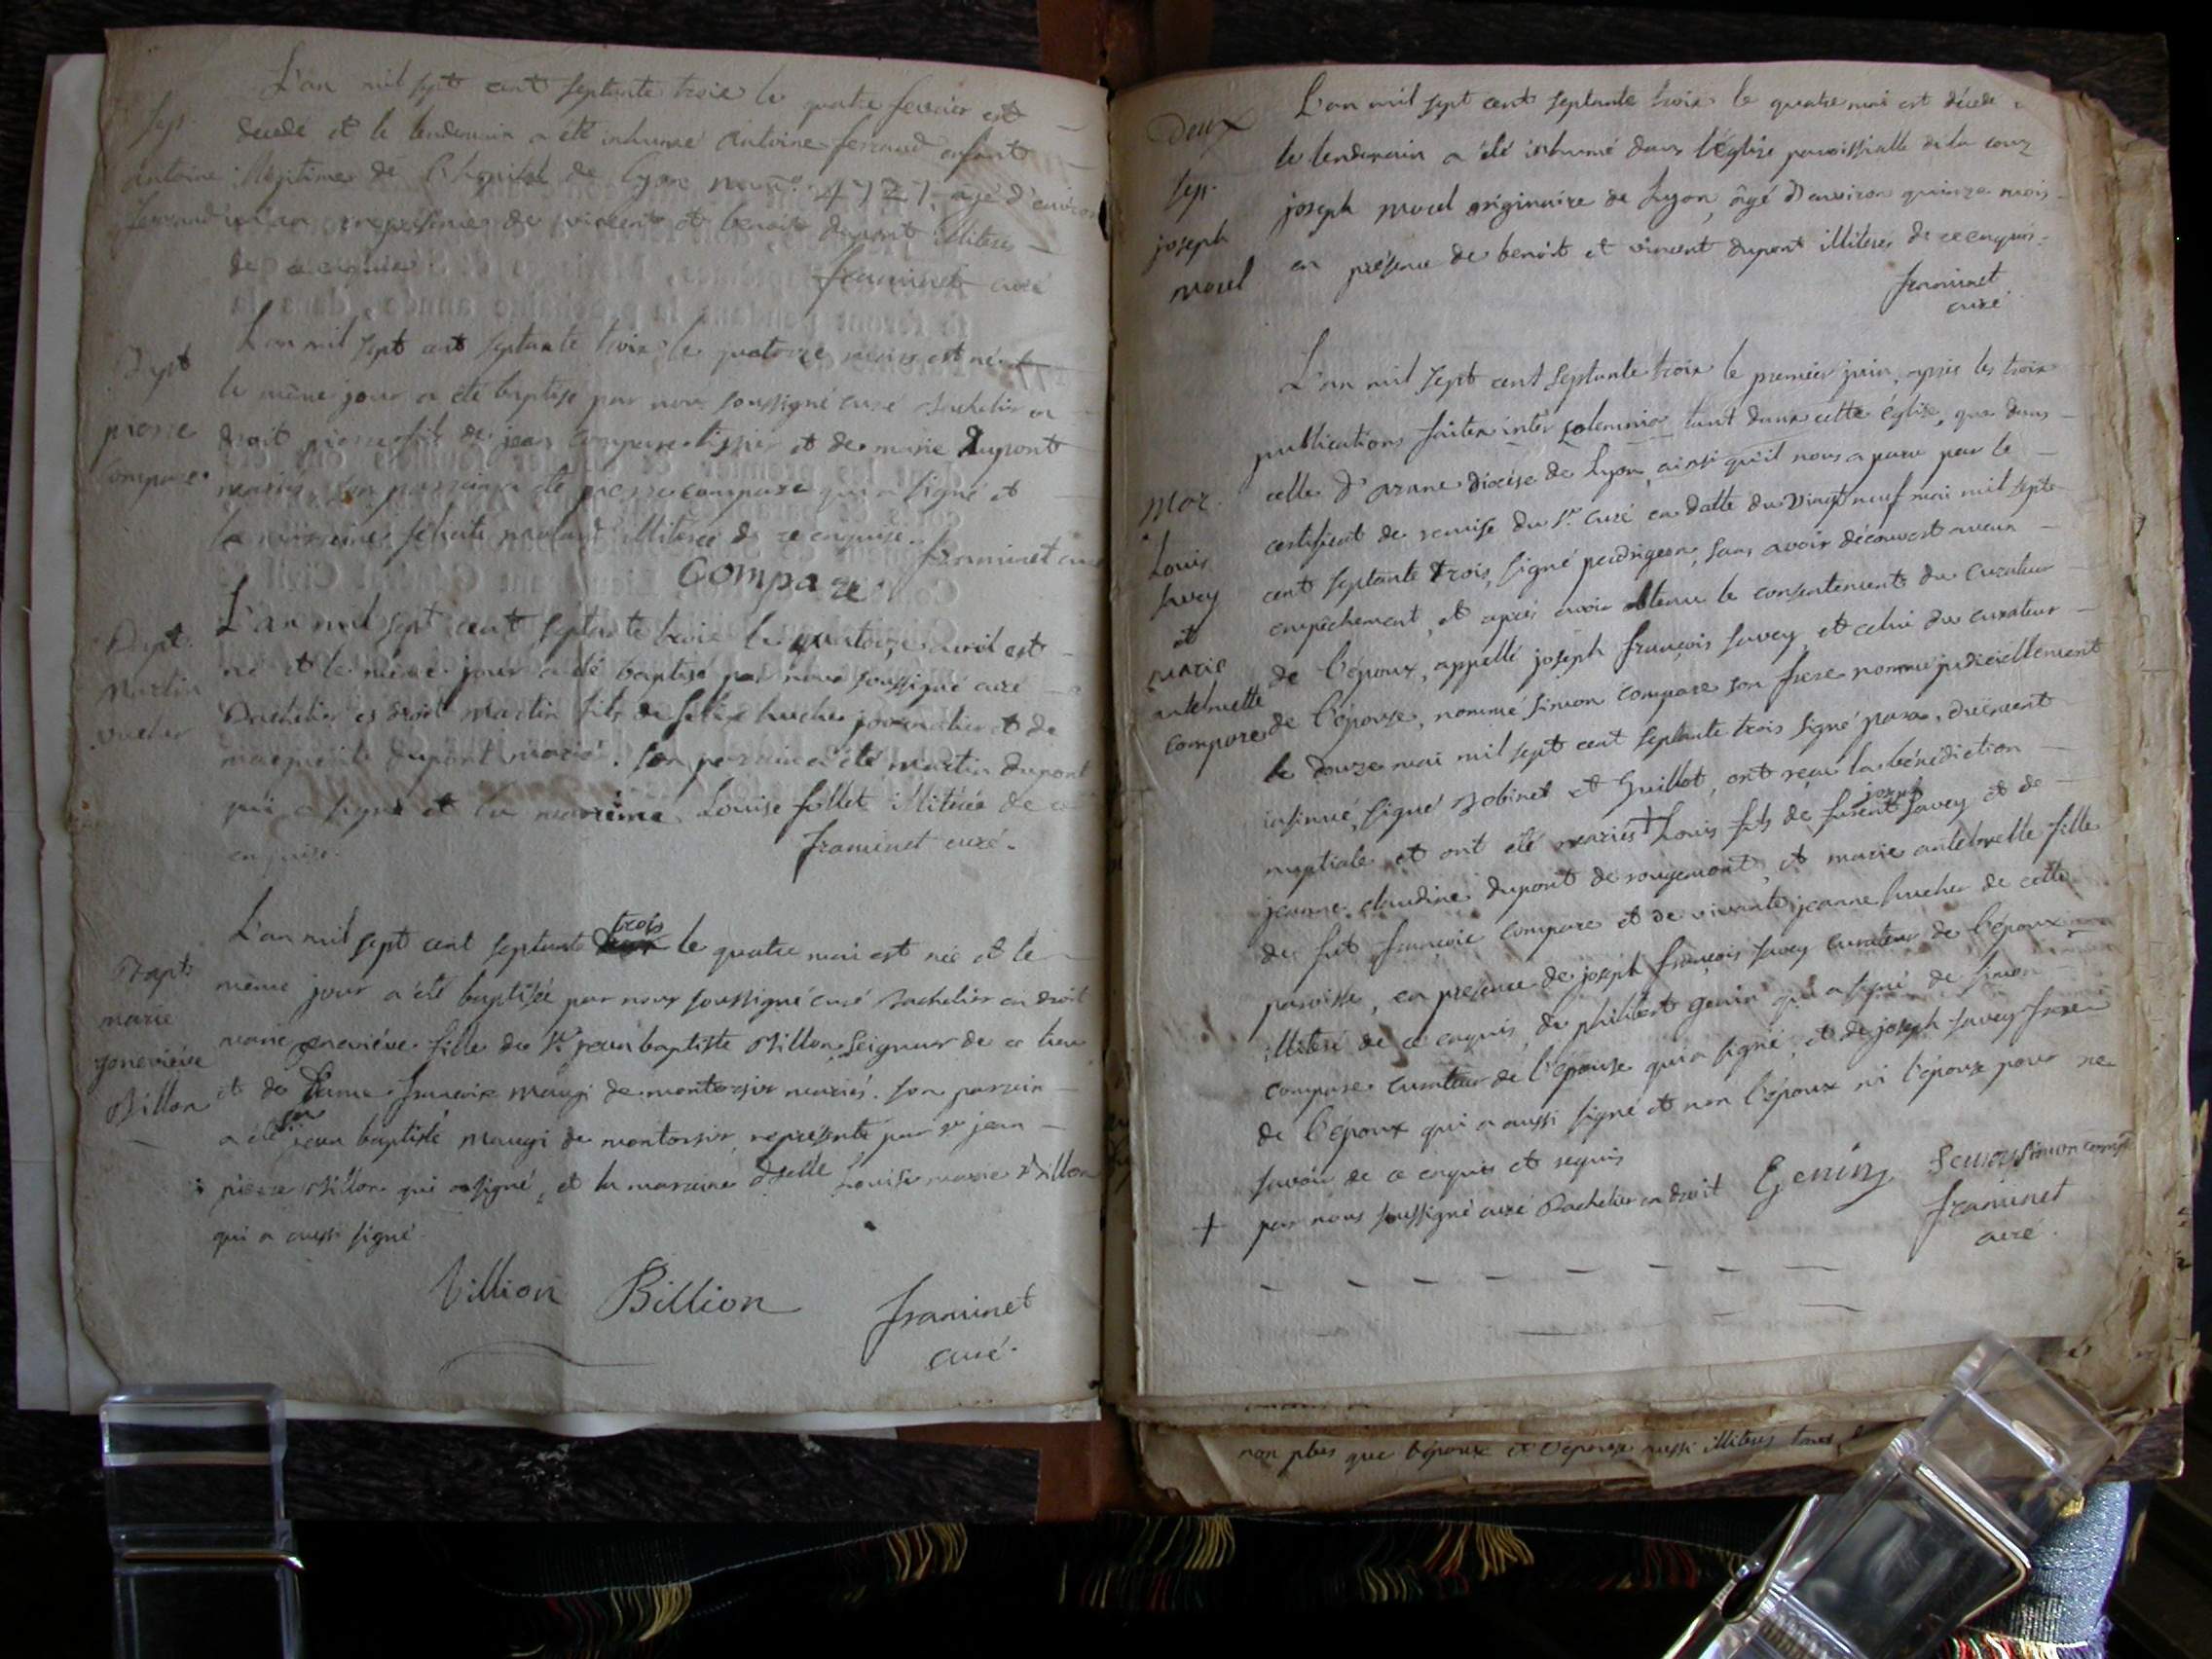 L'an mil sept cent septante trois le quatre fevrier est
Sep. decedé et le lendemain a été inhumé antoine ferraud enfant
antoine légitime de l'hopital de Lyon 4727, agé d'environ
ferraud un an en presence de vincent et benoit dupont illiterés
de ce enquis.
framinet curé
L'an mil sept cent septante trois le quatorze mars est né et
Bapt le même jour a été baptisé par nous soussigné curé Bachelier en
pierre droit pierre fils de jean compare tissier et de marie Dupont
compare mariés. son parrain a été pierre compare qui a signé et
la marraine felicité illiterée de ce enquise.
framinet curé
Compare
L'an mil sept cent septante trois le quatorze avril est
Bapt. né et le même jour a été baptisé par nous soussigné curé
martin Bachelier es droit martin fils de felix hucher journalier et de
hucher marguerite dupont mariés. son parrain a été martin dupont
qui a signé et la marraine Louise follet illiterée de ce
enquise.
framinet curé.
L'an mil sept cent septante trois le quatre mai est née et le
Bapt même jour a été baptisée par nous soussigné curé Bachelier en droit
marie marie geneviéve fille du Sr jean baptiste Billion Seigneur de ce lieu
geneviéve et de Dame françoise maugi de montorsin mariés. son parrain
Billon a été Sr jean baptiste maugi de montorsin, representé par sr jean
pierre Billon qui a signé, et la marraine dselle Louise marie Billon
qui a aussi signé.
Billion Billion framinet
curé.
L'an mil sept cent septante trois le quatre mai est décédé
Deux le lendemain a été inhumé dans l'église paroissialle de la coux
Sep. joseph morel originaire de Lyon, âgé d'environ quinze mois
joseph en présence de benoit et vincent dupont illiterés de ce enquis.
morel
framinet
curé
L'an mil sept cent septante trois le premier juin, après les trois
publications faites inter solemnia tant dans cette église, que dans
celle d'arane diocèse de Lyon, ainsi qu'il nous a paru par le
Mar. certificat de remise du Sr. curé en datte du vingt neuf mai mil sept
Louis cent septante trois, signé perdrigeon, sans avoir découvert aucun
Savey empêchement, et après avoir obtenu le consentement du curateur
et de l'époux, appellé joseph françois Savey, et celui du curateur
marie
antelmette de l'épouse, nommé simon compare son frere nommé judiciellement
compare le douze mai mil sept cent septante trois signé, duement
insinué, signé Robinet et Guillot, ont reçu la bénédiction
nuptiale et ont été mariés + Louis fils de joseph Savey et de
jeanne claudine dupont de rougemont, et marie antelmette fille
de fut françois compare et de vivante jeanne hucher de cette
paroisse, en presence de joseph françois Savey curateur de l'époux,
illiteré de ce enquis, de philibert genin qui a signé de simon
compare curateur de l'épouse qui a signé, et de joseph Savey frere
de l'époux qui a aussi signé et non l'époux ni l'épouse pour ne
savoir de ce enquis et requis
+ par nous soussigné curé Bachelier en droit Genin Simon compare
framinet
curé.
non plus que l'époux et l'épouse aussi illiterés